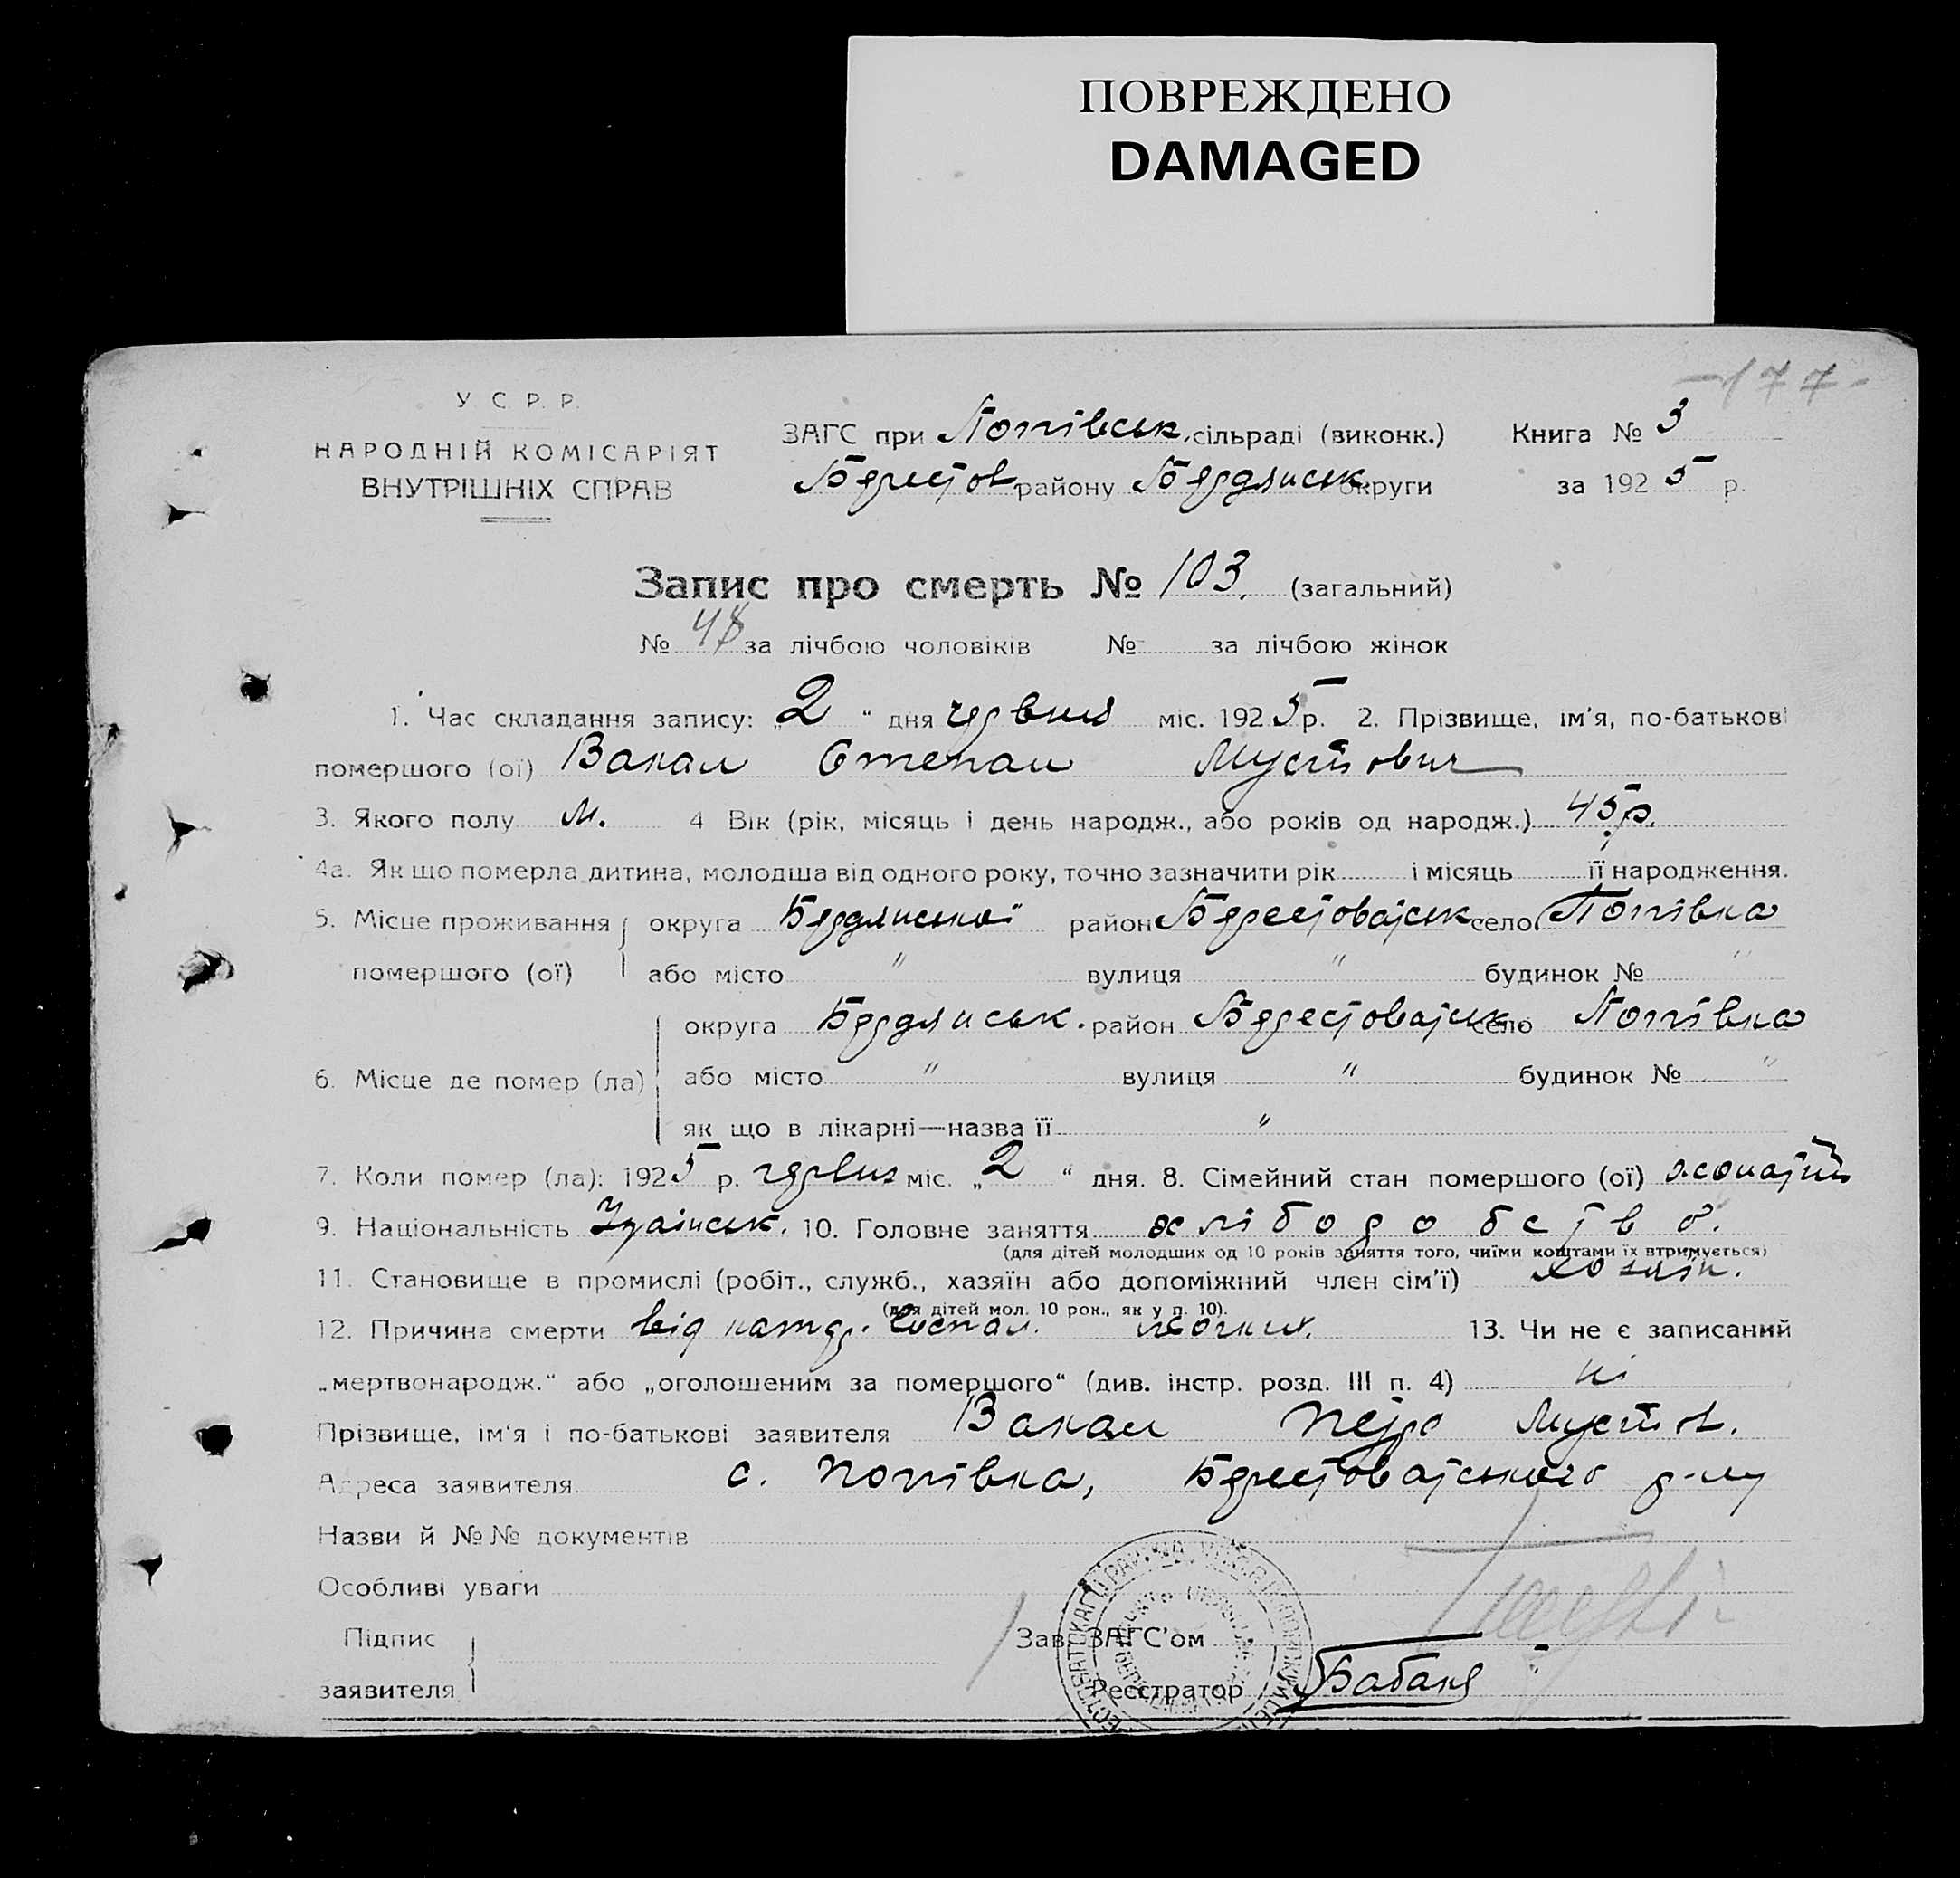 ПОВРЕЖДЕНО
DAMAGED
-177-
У С. Р. Р.
НАРОДНІЙ КОМІСАРІЯТ
ВНУТРІШНІХ СПРАВ
ЗАГС при Попівськ. сільраді (виконк.) Книга № 3
Берестов. району Бердянськ. округи за 1925 р.
Запис про смерть № 103. (загальний)
№ 48 за лічбою чоловіків № за лічбою жінок
1. Час складання запису: „2“ дня червня міс. 1925 р. 2. Прізвище, ім'я, по-батькові
помершого (ої) Вакал Степан
3. Якого полу м. 4 Вік (рік, місяць і день народж., або років од народж.) 45 р.
4а. Як що померла дитина, молодша від одного року, точно зазначити рік і місяць її народження.
5. Місце проживання округа Бердянської район Берестоватськ. село Попівка
помершого (ої) або місто " вулиця " будинок № "
округа Бердянськ. район Берестоватськ. село Попівка
6. Місце де помер (ла) або місто " вулиця " будинок № "
як що в лікарні—назва її "
7. Коли помер (ла): 1925 р. червня міс. „2“ дня. 8. Сімейний стан помершого (ої) жонатий
9. Національність Україньск. 10. Головне заняття хліборобство.
(для дітей молодших од 10 років заняття того, чиїми коштами їх втримується)
11. Становище в промислі (робіт., служб., хазяїн або допоміжний член сім'ї) хозяїн.
(для дітей мол. 10 рок., як у п. 10).
12. Причина смерти від катар. воспал. легких. 13. Чи не є записаний
„мертвонародж.“ або „оголошеним за помершого“ (див. інстр. розд. III п. 4) ні
Прізвище, ім'я і по-батькові заявителя Вакал Петро
Адреса заявителя с. Попівка, Берестоватського р-ну
Назви й №№ документів
Особливі уваги
Підпис
заявителя
Зав. ЗАГС'ом
Реєстратор Бабак